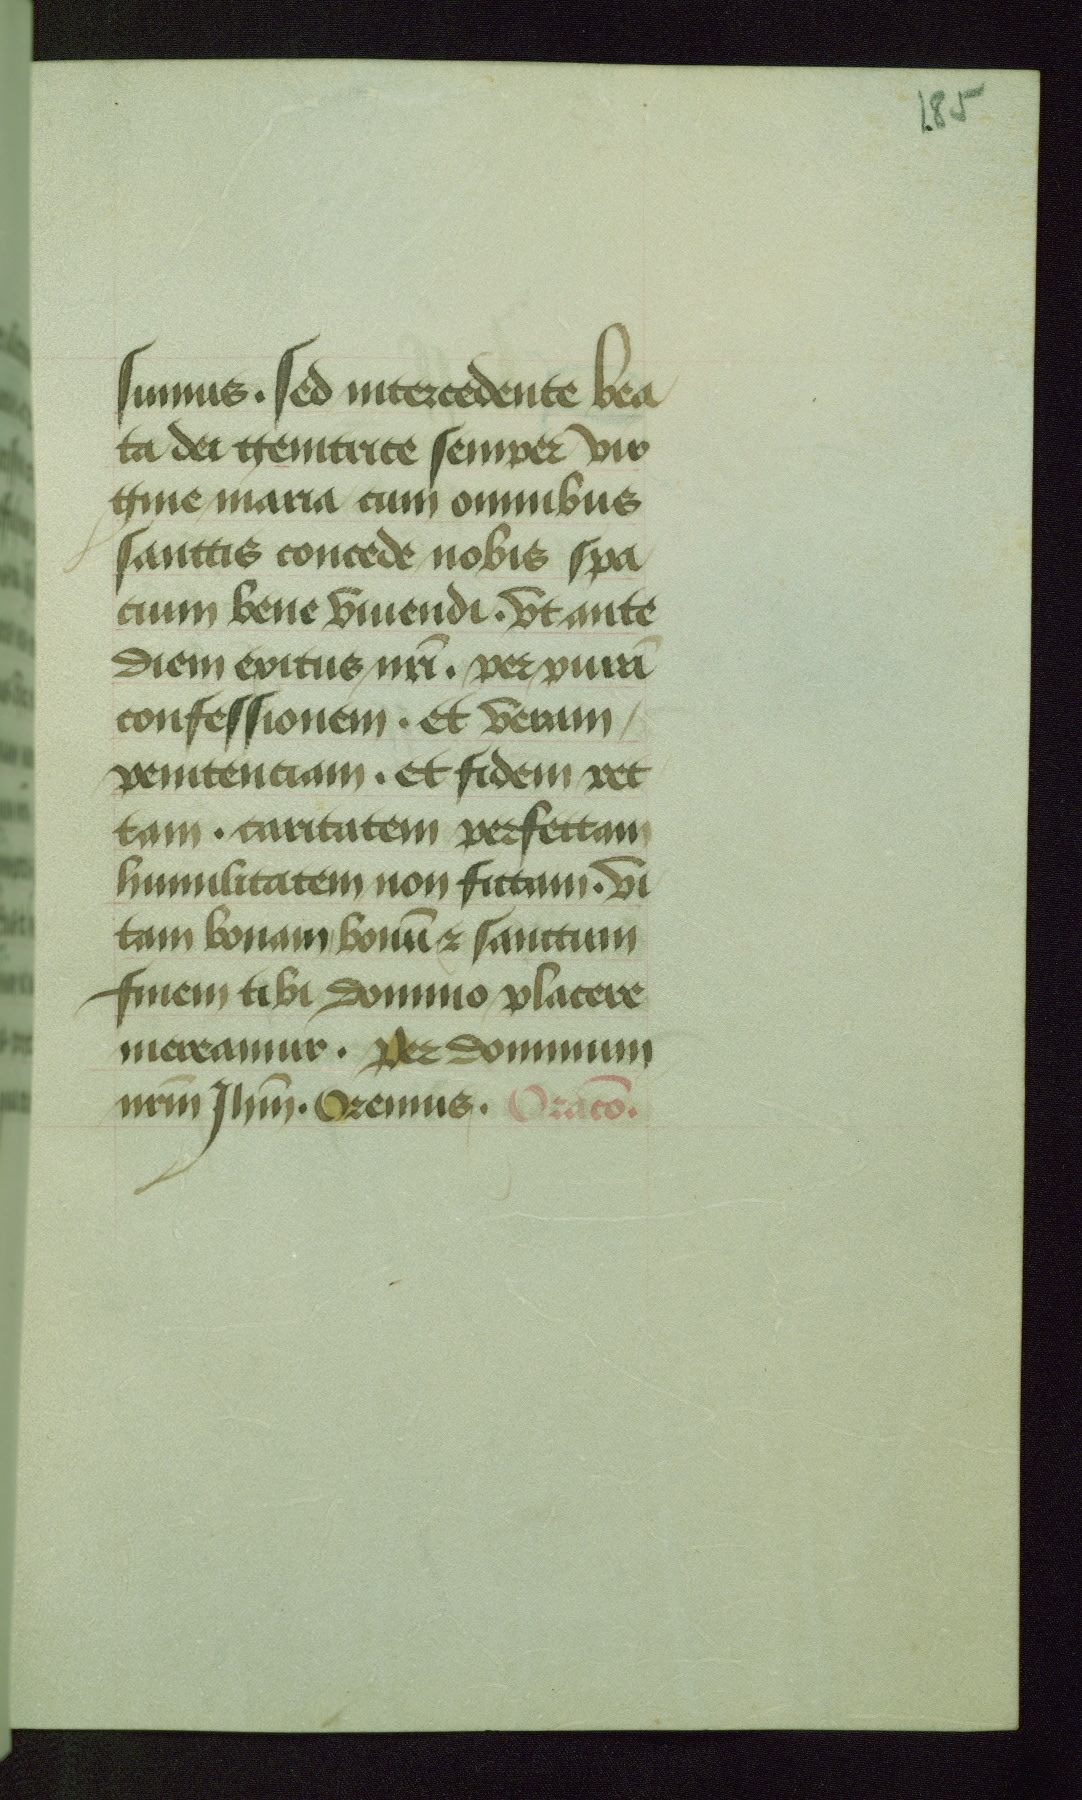 185
sumus. Sed intercedente bea
ta dei genitrice semper vir
gine maria cum omnibus
sanctis concede nobis spa
cium bene viuendi. vt ante
diem exitus nr̄i. per purā
confessionem. et veram
penitenciam. et fidem rec
tam. caritatem perfectam
humilitatem non fictam. vi
tam bonam bonū ⁊ sanctum
finem tibi domino placere
mereamur. Per dominum
nr̄m Jhm̄. Oremus. Oracō.